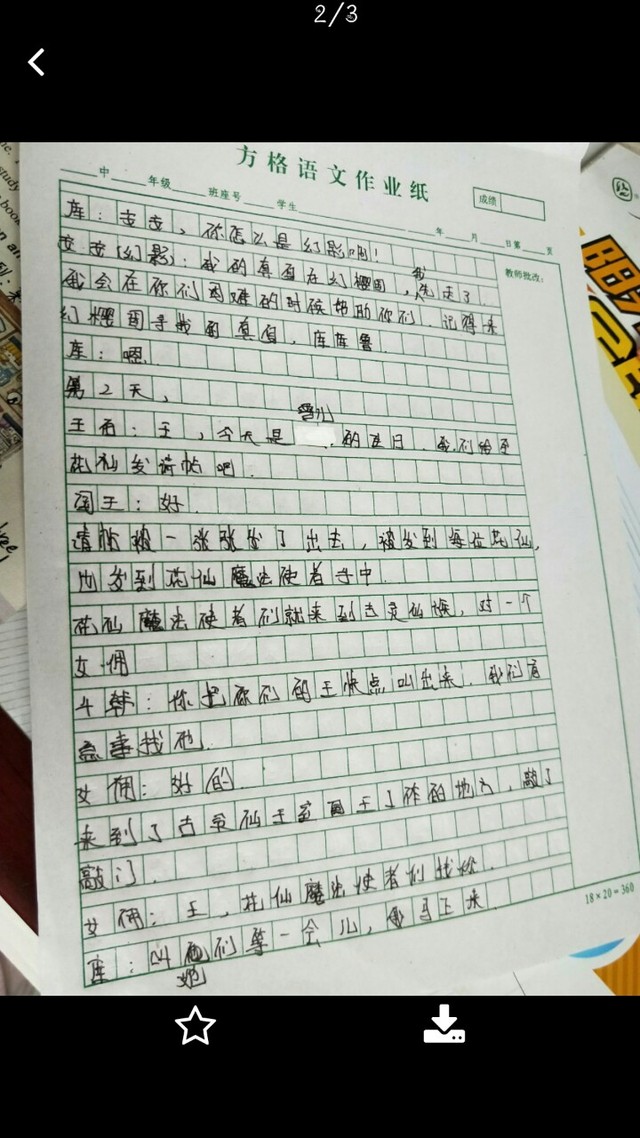 2/3
方格语文作业纸
中 年级 班座号 学生 年 月 日第 页
成绩
教师批改：
库：安安，你怎么是幻影啊！
安安（幻影）：我的真身在幻樱园，我先走了．
我会在你们困难的时候帮助你们．记得来
幻樱园寻我的真身，库库鲁．
库：嗯．
第2天，
王后：王，今天是 的生日．我们给
花仙发请帖吧．
国王：好．
请帖被一张张发了出去，被发到每位花仙，
也发到花仙魔法使者手中．
花仙魔法使者们就来到古灵仙族，对一个
女佣
千韩：你把你们的王快点叫出来．我们有
急事找他．
女佣：好的．
来到了古灵仙王室国王工作的地方，敲了
敲门．
女佣：王，花仙魔法使者们找你．
库：叫她们等一会儿，我马上来．
18×20=360